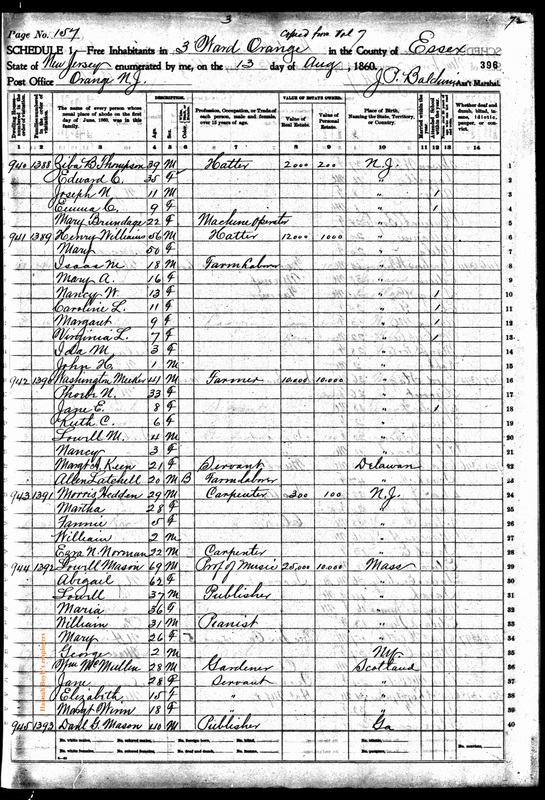 3
Copied from Vol 7
72
Page No. 157
SCHEDULE 1.—Free Inhabitants in 3 Ward Orange in the County of Essex
State of New Jersey enumerated by me, on the 13 day of Aug, 1860. 396
Post Office Orange N.J. J. P. Baldwin Ass't Marshal.
The name of every person whose usual place of abode on the first day of June, 1860, was in this family.
DESCRIPTION.
Age. Sex.
Profession, Occupation, or Trade of each person, male and female, over 15 years of age.
VALUE OF ESTATE OWNED.
Value of Real Estate. Value of Personal Estate.
Place of Birth, Naming the State, Territory, or Country.
Whether deaf and dumb, blind, insane, idiotic, pauper, or convict.
1 2 3 4 5 6 7 8 9 10 11 12 13 14
940 1388 B. Thompson 39 M Hatter 2000 200 N.J. 1
Edward C. 35 F " 2
Joseph N 11 M " 1 3
Emma C. 9 F " 1 4
Mary Brundage 22 F Machine operator " 5
941 1389 Henry Williams 56 M Hatter 12000 1000 " 6
Mary 50 F " 7
Isaac M 18 M Farm Labor " 8
Mary A. 16 F " 9
Nancy W. 13 F " 1 10
Caroline L. 11 F " 1 11
Margaret 9 F " 1 12
Virginia L. 7 F " 1 13
Ida M 3 F " 14
John H. 1 M " 15
942 1390 Washington Meeker 41 M Farmer 10,000 10,000 " 16
Phoebe N. 33 F " 17
Jane E. 8 F " 1 18
Ruth C. 6 F " 19
Lowell M. 4 M " 20
Nancy 3 F " 21
Margt A. Keen 21 F Servant Delawar 22
Allen Latchell 20 M B Farm labor " 23
943 1391 Morris Hedden 29 M Carpenter 300 100 N.J. 24
Martha 28 F " 25
Fannie 5 F " 26
William 2 M " 27
Ezra N. Norman 22 M Carpenter " 28
944 1392 Lowell Mason 69 M Prof of Music 25,000 10,000 Mass 29
Abigail 62 F " 30
Lowell 37 M Publisher " 31
Maria 36 F " 32
William 31 M Pianist " 33
Mary 26 F " 34
George 2 M NY 35
Wm McMullen 28 M Gardener Scotland 36
Jane 28 F Servant " 37
Elizabeth 15 F " " 38
Margt Winn 18 F " " 39
945 1393 Danl G. Mason 40 M Publisher Ga 40
No. white males, No. colored males, No. foreign born, No. blind,
No. white females, No. colored females, No. deaf and dumb, No. insane,
No. idiotic, No. paupers, No. convicts,